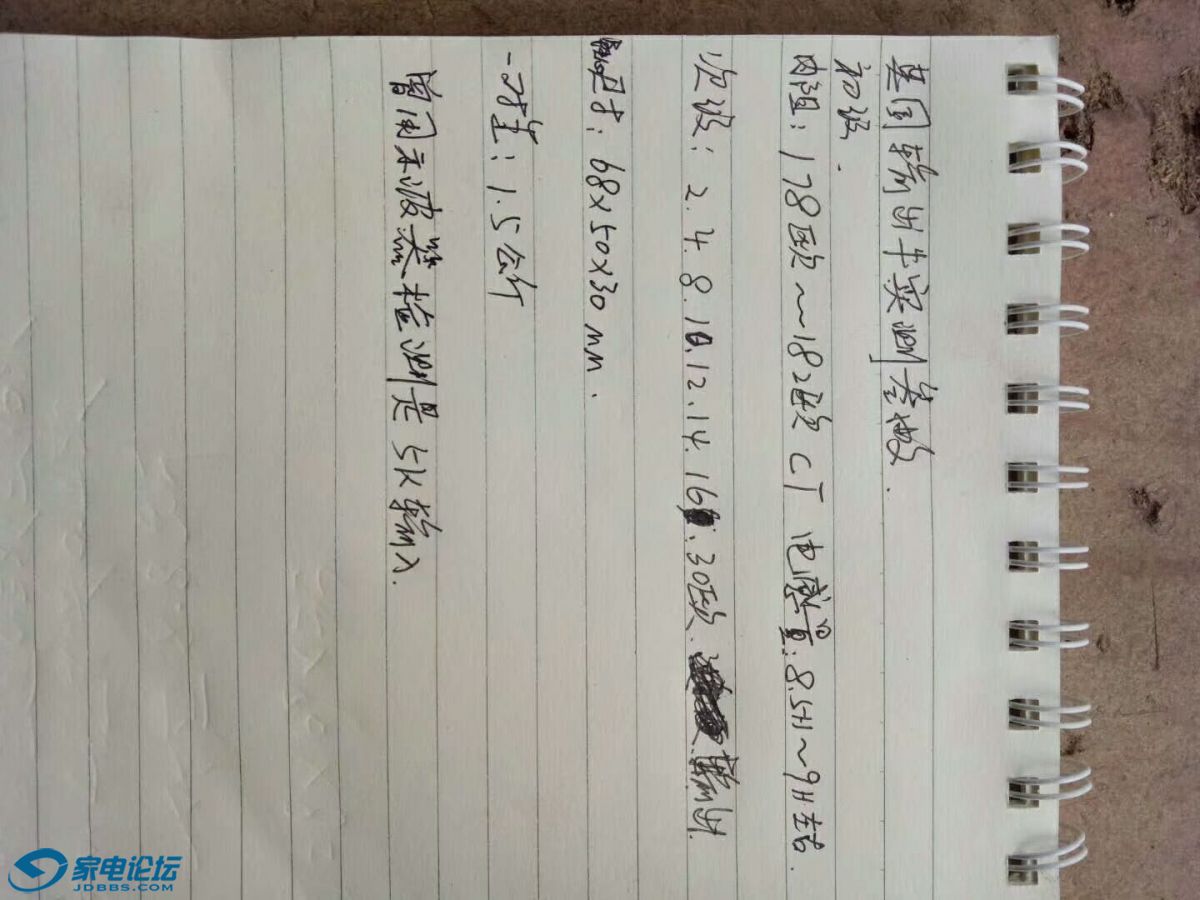 英国输出牛实测参数.
初级.
内阻: 178欧~182欧 CT 电感量:8.5H~9H左右.
次级: 2.4.8.10.12.14.16.30欧. 输出.
尺寸: 68×50×30mm.
一对重: 1.5公斤
曾用示波器检测是5K输入.
家电论坛
JDBBS.COM